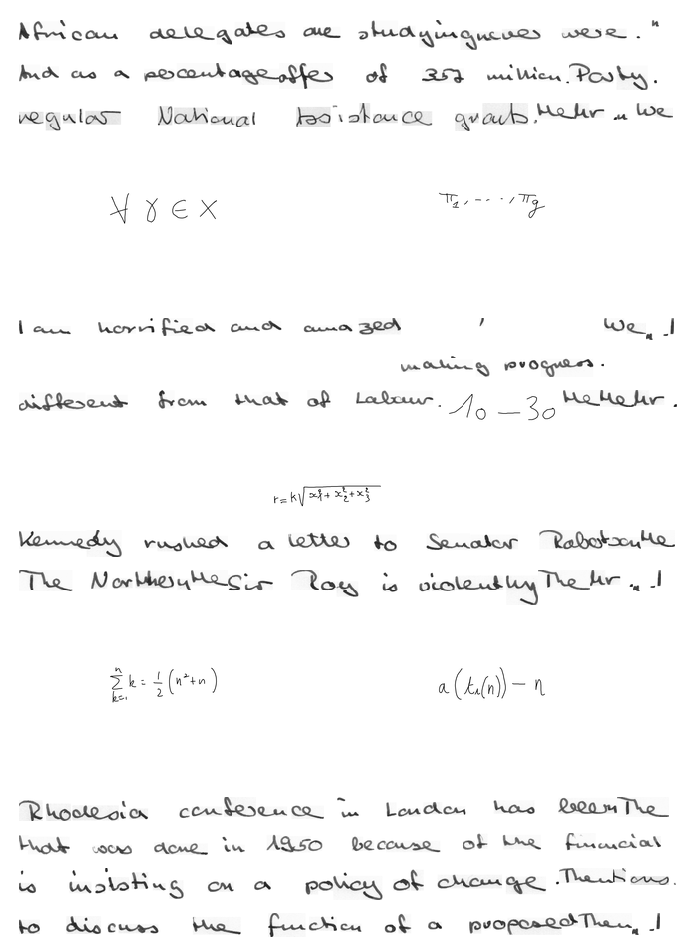 African delegates are studying never were . "
And as a percentage offer of 357 million . Party .
regular National Assistance grants . He Mr " We
∀ γ ∈ X
π₁, ..., π_g
I am horrified and amazed , We " I
making progress .
different from that of Labour . 10 - 30 He He Mr .
r = k√(x₁² + x₂² + x₃²)
Kennedy rushed a letter to Senator Robotson He
The Northern He Sir Roy is violently The Mr . " I
∑_{k=1}^{n} k = 1/2 (n² + n)
a(t₁(n)) - n
Rhodesia conference in London has been The
that was done in 1950 because of the financial
is insisting on a policy of change . The tions .
to discuss the function of a proposed Then " I